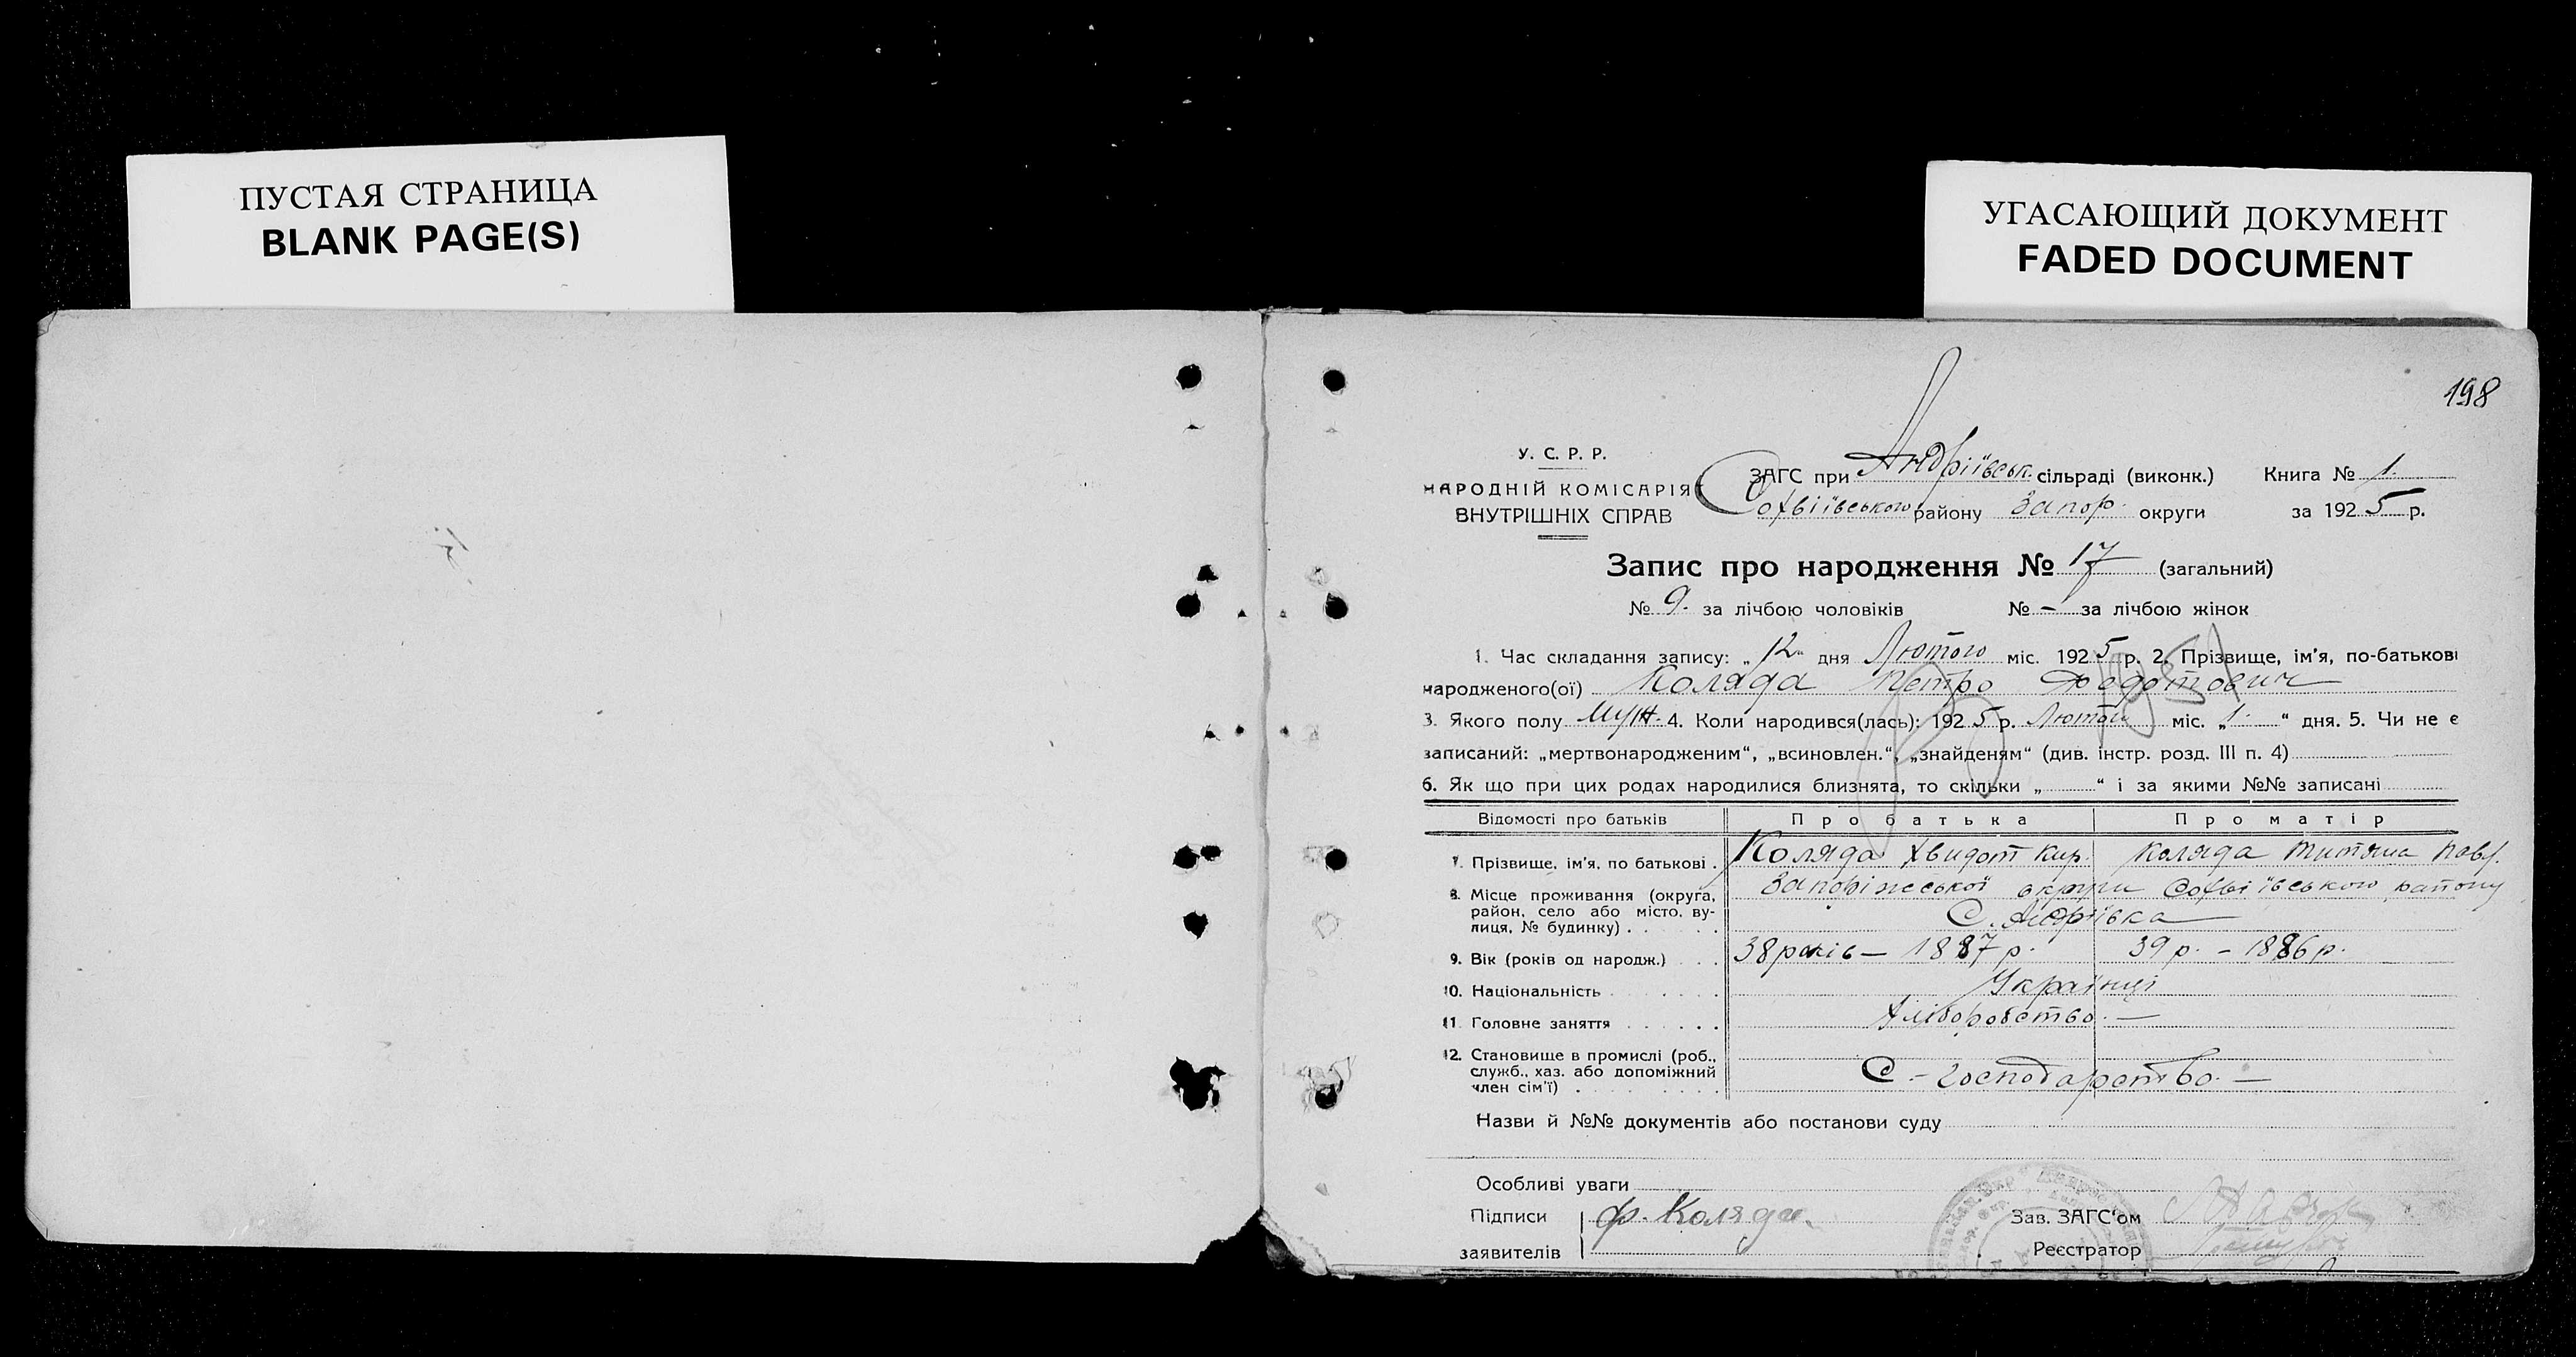 ПУСТАЯ СТРАНИЦА
BLANK PAGE(S)
УГАСАЮЩИЙ ДОКУМЕНТ
FADED DOCUMENT
198
У. С. Р. Р.
НАРОДНІЙ КОМІСАРІЯТ
ВНУТРІШНІХ СПРАВ
ЗАГС при Андріївськ. сільраді (виконк.) Книга № 1.
Софіївського району Запор. округи за 1925 р.
Запис про народження № 17 (загальний)
№ 9. за лічбою чоловіків № — за лічбою жінок
1. Час складання запису: „12“ дня Лютого міс. 1925 р. 2. Прізвище, ім'я, по-батькові
народженого(ої) Коляда Петро Федотович
3. Якого полу Муж. 4. Коли народився(лась): 1925 р. Лютого міс. „1.“ дня. 5. Чи не є
записаний: „мертвонародженим“, „всиновлен.“, „знайденям“ (див. інстр. розд. III п. 4)
6. Як що при цих родах народилися близнята, то скільки „ “ і за якими №№ записані
Відомості про батьків Про батька Про матір
7. Прізвище, ім'я, по батькові . Коляда Хвидот Кир. Коляда Титяна Павл.
8. Місце проживання (округа, район, село або місто, вулиця, № будинку) . Запоріжської округи Софіївського району
С. Андріївка
9. Вік (років од народж.) 38 років — 1887 р. 39 р. - 1886 р.
10. Національність Українці
11. Головне заняття Хліборобство. —
12. Становище в промислі (роб.,
служб., хаз. або допоміжний
член сім'ї) . С. - господарство. —
Назви й №№ документів або постанови суду
Особливі уваги
Підписи Ф. Коляда. Зав. ЗАГС'ом
заявителів Реєстратор